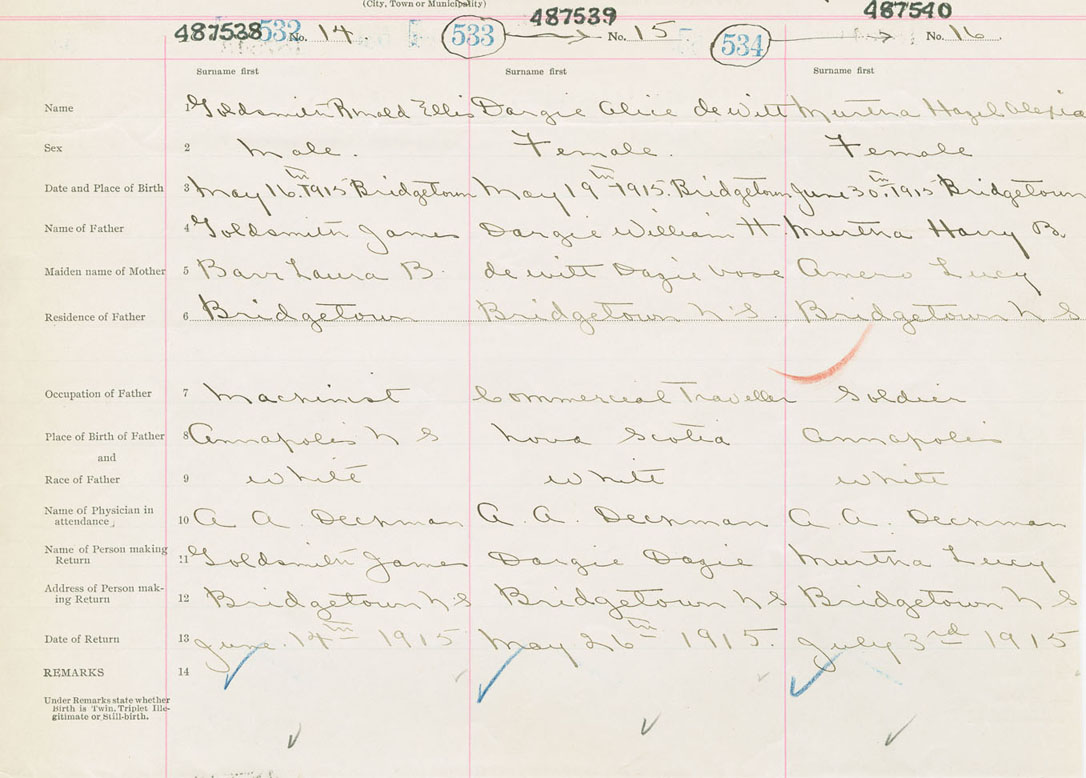 (City, Town or Municipality)
487538 532 No. 14 533 487539 No. 15 534 487540 No. 16
Surname first Surname first Surname first
Name 1 Goldsmith Ronald Ellis Dargie Alice de witt Murtha Hazel Alexia
Sex 2 Male. Female. Female
Date and Place of Birth 3 May 16th 1915 Bridgetown May 19th 1915. Bridgetown June 30th 1915 Bridgetown
Name of Father 4 Goldsmith James Dargie William H Murtha Harry B.
Maiden name of Mother 5 Barr Laura B. de witt Dazie vose Amero Lucy
Residence of Father 6 Bridgetown Bridgetown N.S. Bridgetown N S
Occupation of Father 7 Machinist Commercial Traveller Soldier
Place of Birth of Father 8 Annapolis N S Nova Scotia Annapolis
and
Race of Father 9 white white white
Name of Physician in
attendance, 10 A A. Deckman A. A. Deckman A A. Deckman
Name of Person making
Return 11 Goldsmith James Dargie Dazie Murtha Lucy
Address of Person mak-
ing Return 12 Bridgetown N S Bridgetown N S Bridgetown N S
Date of Return 13 June. 14th 1915 May 26th 1915. July 3rd 1915
REMARKS 14
Under Remarks state whether
Birth is Twin, Triplet Ille-
gitimate or Still-birth.